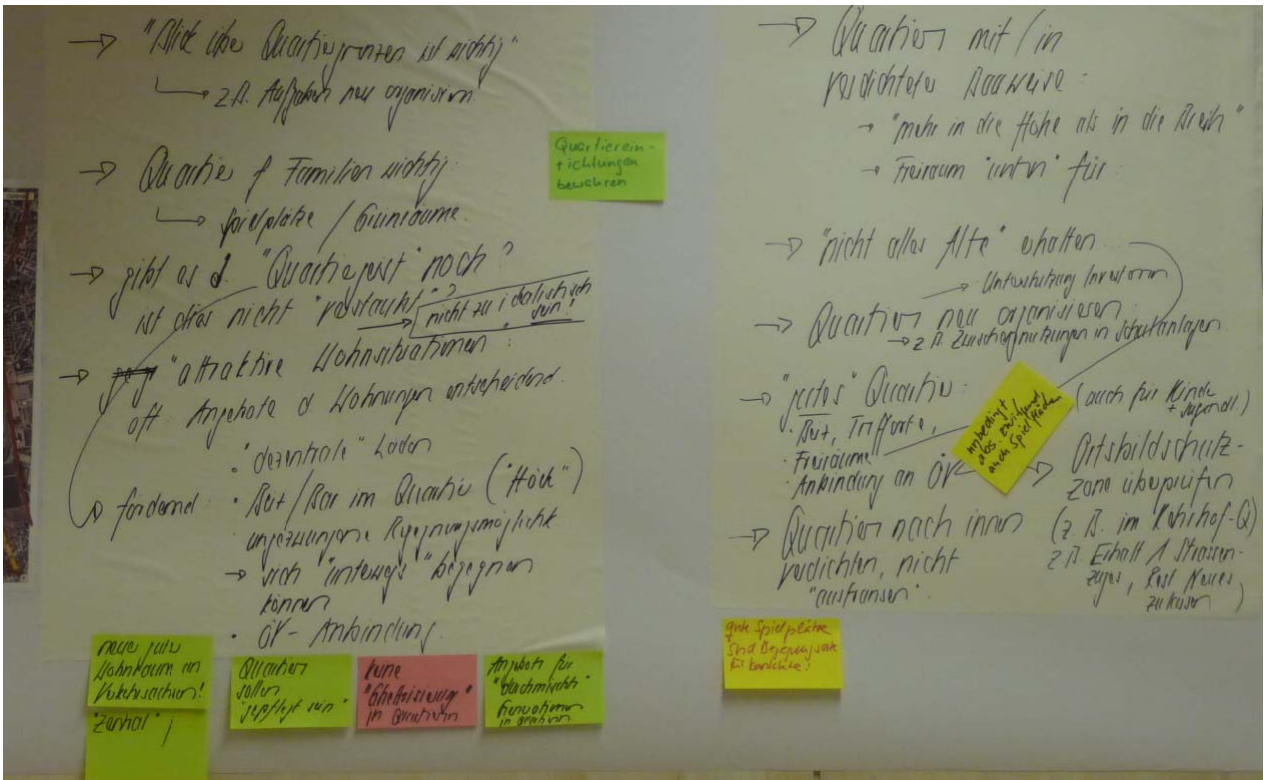 → "Blick über Quartiergrenzen ist wichtig"
→ z.B. Aufgaben neu organisieren
→ Quartier f Familien wichtig:
→ Spielplätze / Grünräume.
→ gibt es d. "Quartiergeist" noch?
ist dies nicht "verstaubt"?
→ nicht zu idealistisch
sein!
→ "attraktive Wohnsituationen:
oft: Angebote d Wohnungen entscheidend.
fördernd:
· "dezentrale" Läden
· Beiz/Bar im Quartier ("Höck")
ungezwungene Begegnungsmöglichk
→ sich "unterwegs" begegnen
können
· ÖV-Anbindung.
Quartierein-
richtungen
bewahren
neuer guter
Wohnraum an
Verkehrsachsen!
"Zentral"
Quartier
sollen
"gepflegt sein"
keine
"Ghettoisierung"
in Quartieren
Angebote für
"durchmischte"
Generationen
in Quartieren
→ Quartier mit/in
verdichteter Bauweise:
→ "mehr in die Höhe als in die Breite"
→ Freiraum "unten" für:
→ "nicht alles Alte" erhalten
→ Unterstützung Investoren
→ Quartier neu organisieren:
→ z B. Zwischennutzungen in Schulanlagen
→ "gutes" Quartier:
· Beiz, Trefforte,
· Freiräume
· Anbindung an ÖV
unbedingt
auch Spielflächen
(auch für Kinder
+ Jugendl.)
→ Ortsbildschutz-
zone überprüfen
(z. B. im
z B. Erhalt 1 Strassen-
zuges, Rest Neues
zulassen)
→ Quartier nach innen
verdichten, nicht
"ausfransen".
gute Spielplätze
sind Begegnungsorte
für